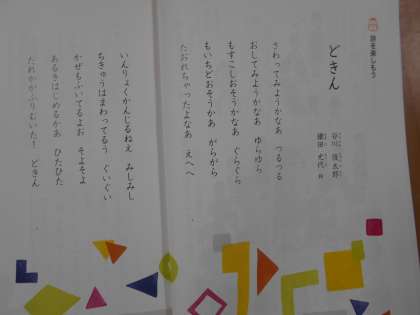 詩を楽しもう
どきん
谷川 俊太郎
さわってみようかなあ つるつる
おしてみようかなあ ゆらゆら
もすこしおそうかなあ ぐらぐら
もいちどおそうかあ がらがら
たおれちゃったよなあ えへへ
いんりょくかんじるねえ みしみし
ちきゅうはまわってるう ぐいぐい
かぜもふいてるよお そよそよ
あるきはじめるかあ ひたひた
だれかがふりむいた! どきん